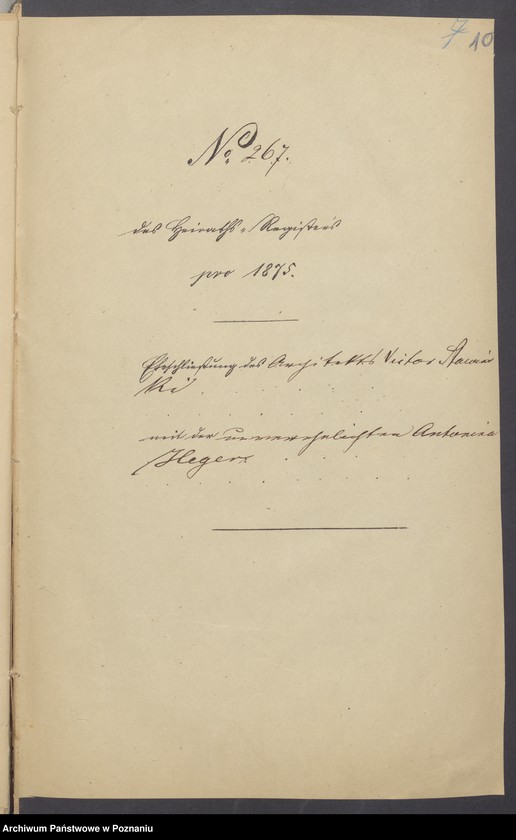 7 10
No. 267.
des Heiraths-Registers
pro 1875.
Eheschließung des Architekts Victor
ki
mit der unverehelichten Antonina
Heger.
Archiwum Państwowe w Poznaniu